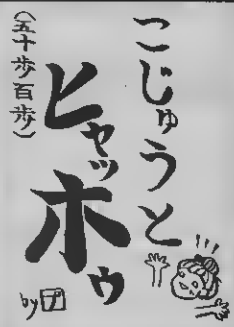 こじゅうと
ヒャッホゥ
(五十歩百歩)
by プ